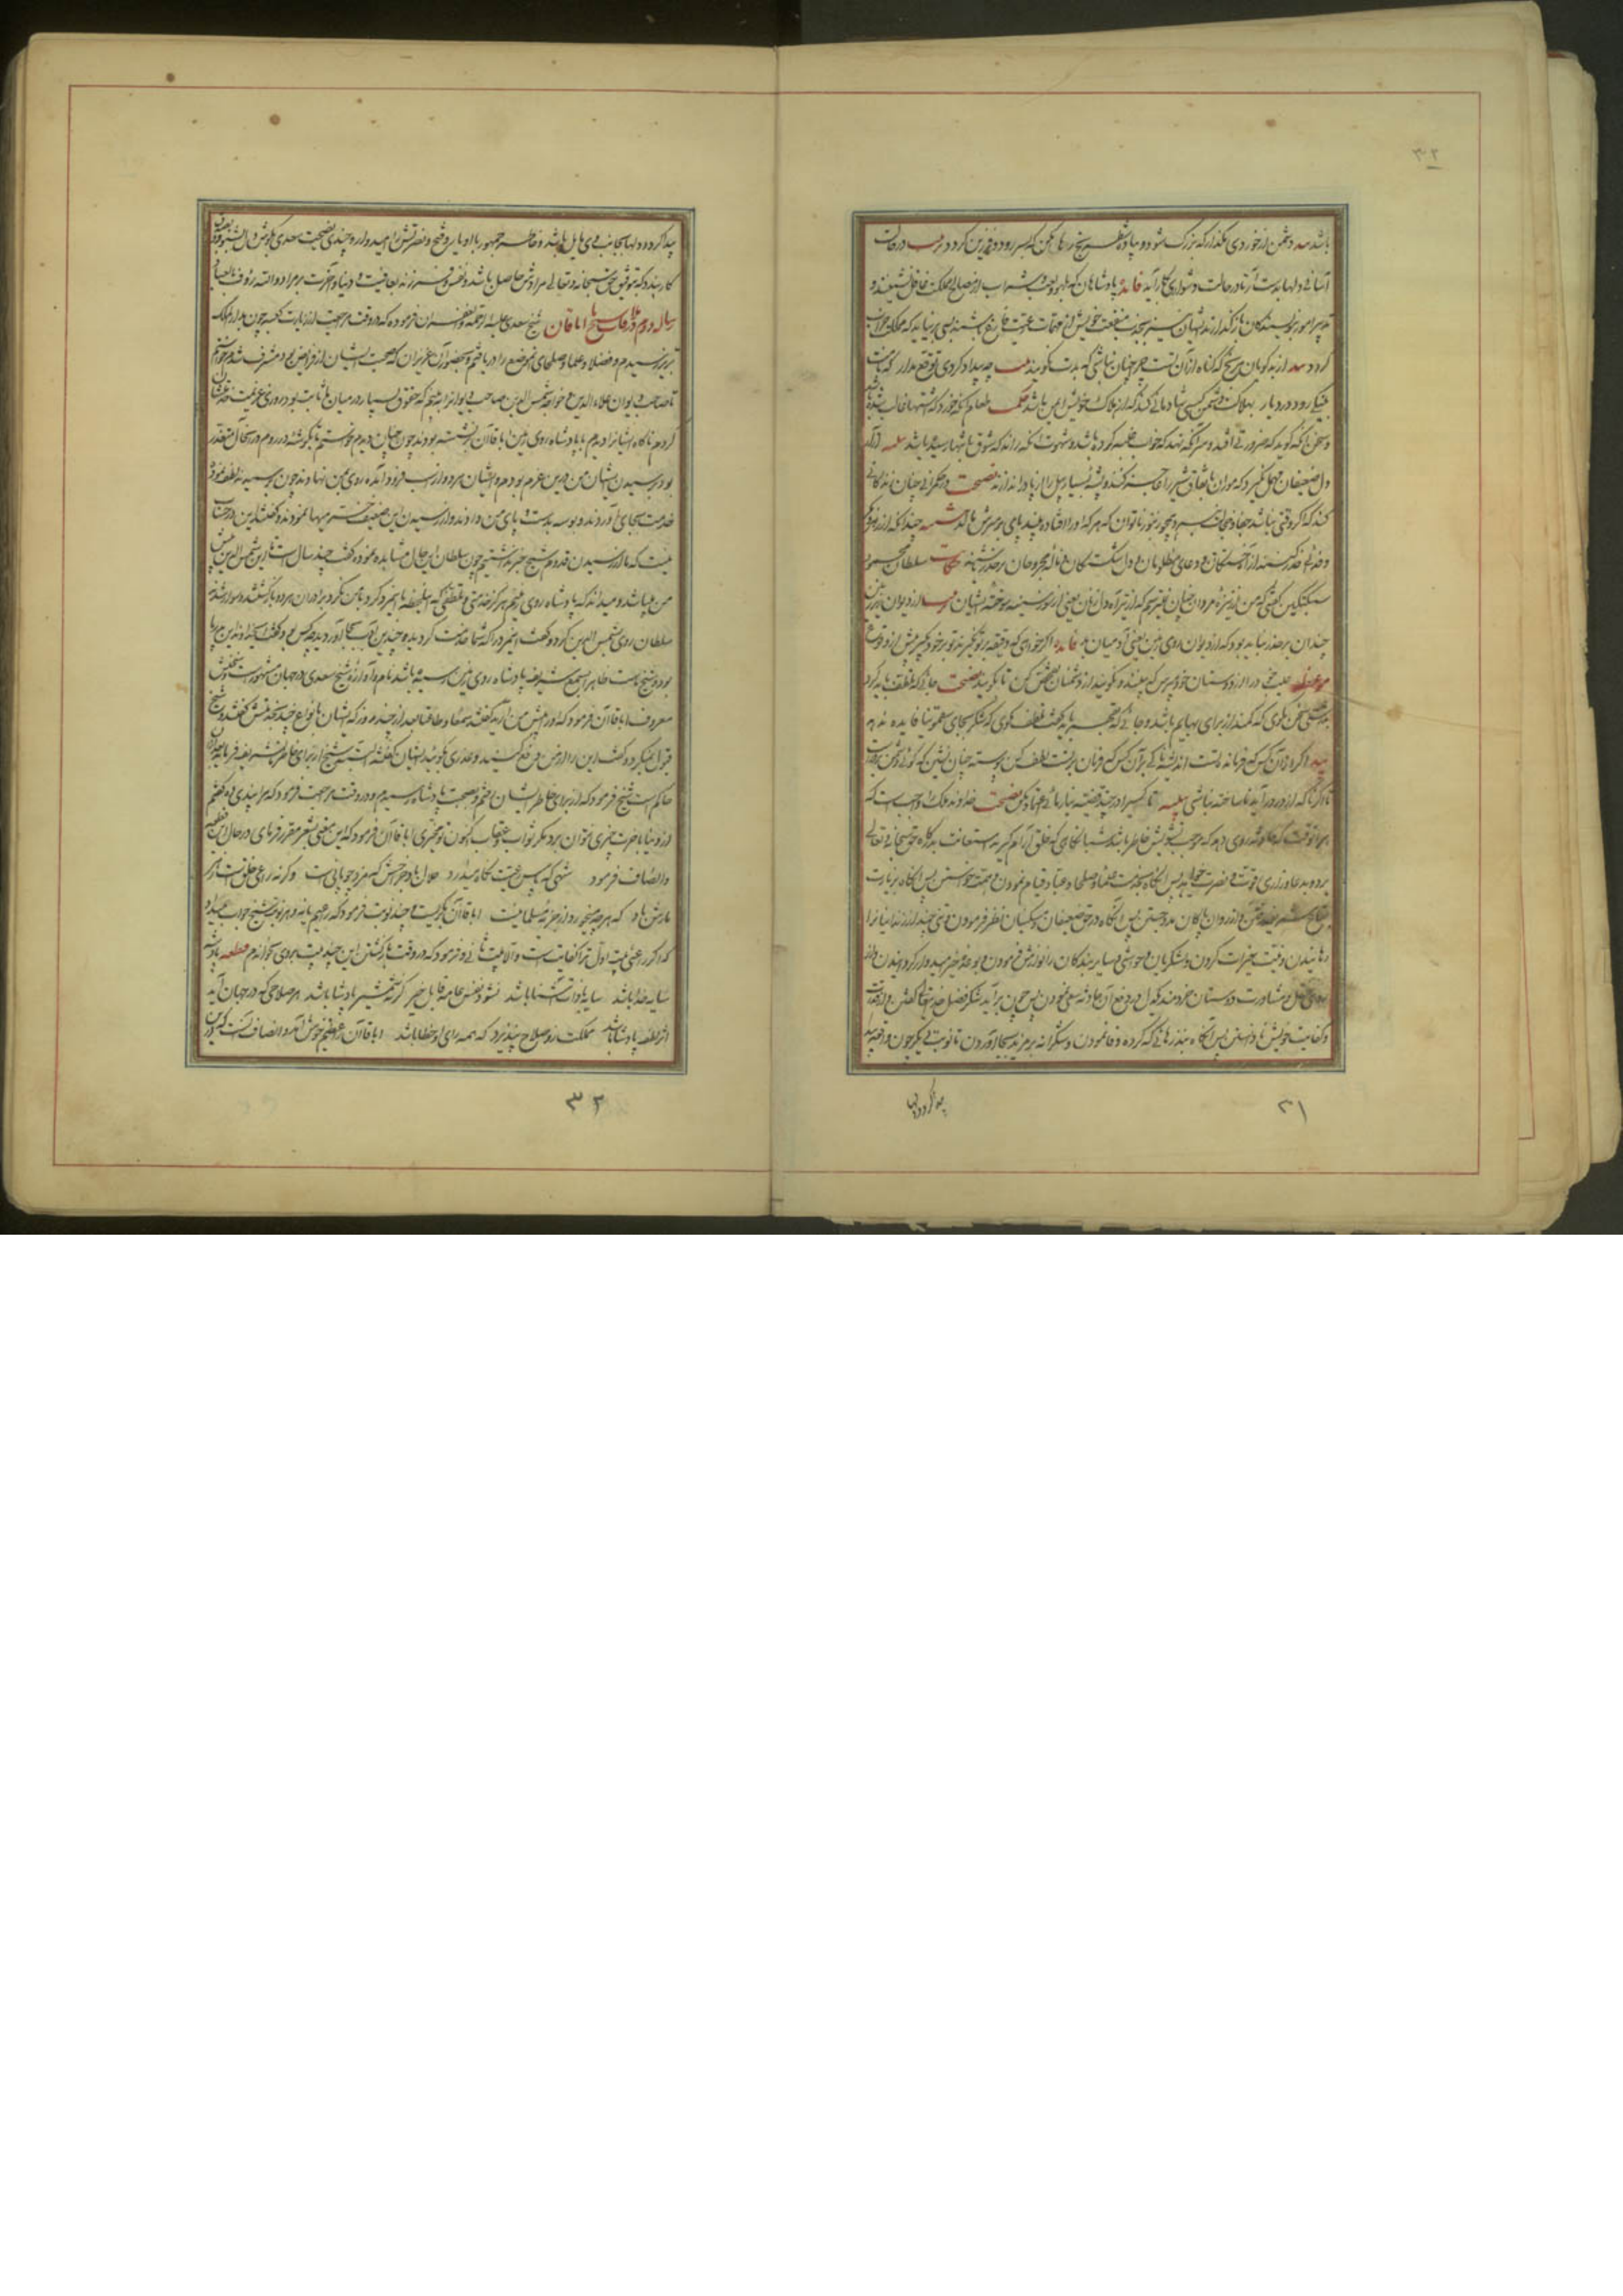 ۳۲
باشد دشمن از خوردی مگذار که بزرگ شود و پیاده شطرنج رها مکن که بسر رود و فرزین گردد در حالت
آسانی دلها بدست آر تا در حالت دشواری بکار آید فائده پادشاهان که بلهو و لعب و شراب از مصالح مملکت غافل نشینند و
تدبیر امور بنویسندگان بازگذارند ایشان نیز بجذب منفعت خویش از مهمات رعیت فارغ نشینند بسی برنیاید که مملکت خراب
گردد از بدگویان مرنج که گناه از آن تست چرا چنان نباشی که بدت نگویند چه بیداد کردی توقع مدار که نامت
بنیکی رود در دیار بهلاک دشمن کسی شادمانی کند که از هلاک خویش ایمن باشد حکمت طعام آنگه خورد که اشتها غالب شده باشد
و سخن آنگه گوید که ضرورتی افتد و سر آنگه نهد که خواب غلبه کرده باشد و شهوت آنگه راند که شوق بانتها رسیده باشد
دل ضعیفان سهل نگیرد که موران باتفاق شیر را خسته کنند و پشه بسیار پیل را از پا در اندازند نصیحت در حکمرانی چنان زندگانی
کند که اگر وقتی نباشد جفا و خجالت نبرد همچو زنبور ناتوان که هر که او را افتاده بیند پای بر سرش مالد چندانکه از زهر و مکر
و خدنگ حذر کنند از آه خستگان و دعای مظلومان و دل شکستگان و ناله مجروحان بر حذر باشند حکایت سلطان محمود
سبکتکین گفتی که من از نیزه مردان چنان نترسم که از تیر آه دل زنان یعنی از سوز سینه سوخته ایشان
چندان بر حذر نباید بود که از دیوان روی زمین یعنی آدمیان بد فائده اگر خواهی که دقیقه بر تو نگیرند تو بر خود بگیر پیش از وقت
موعظه عیب خود را از دوستان خود مپرس که بپوشند و نگویند از دشمنان تفحص کن تا بگویند نصیحت جائی که لطف باید کرد
بدرشتی سخن مگوی که کمند از برای بهایم باشد و جائی که قهر باید بلطف مگوی که شکر بجای سقمونیا فایده ندهد
پند اگر از آن کس که فرمانده تست اندیشه ناکی بر آن کس که فرمان بر تست لطف کن پیوسته چنان نشین که گوئی دشمن بر در است
تا اگر ناگه از در درآید ناساخته نباشی تا کسی را در چند قضیه نیازمائی اعتماد مکن نصیحت خداوند ملک را واجبست که
هر آنوقت که حادثه روی دهد که موجب تشویش خاطر باشد شبانگاهی که خلق آرام گیرند استعانت بدرگاه حق سبحانه و تعالی
برد و بدعا و زاری قوت و نصرت خواهد پس آنگاه بخدمت علما و صلحا و عباد قیام نمودن و همت خواستن پس آنگاه بزیارت
بقاع شریفه رفتن و از روان پاکان مدد جستن پس آنگاه در حق ضعیفان و مسکینان نظر فرمودن و تنی چند از زندانیان را
رهانیدن و نیت خیرات کردن و لشکریان و حواشی و سایر بندگان را نوازش فرمودن و بوعده خیر امیدوار گردانیدن و از
روی عقل و مشاورت دوستان خردمند یکدل در دفع آن حادثه سعی نمودن پس چون برآید شکر فضل خدای تعالی گفتن و از قوت
و کفایت خویش نا دانستن پس آنگاه بنذرهائی که کرده وفا نمودن و شکرانه بر مزید بجا آوردن تا نوبت دیگر چون واقعه
پیدا گردد دلها
۳۱
پیدا گردد دلها بجانب وی مایل باشد و خاطر جمهور با او یار و فتح و نصرتش را امیدوار و چندی نصیحت سعدی بگوش دل بشنود و
کار بندد که بتوفیق حق سبحانه و تعالی مرادش حاصل باشد و نفس و فرزند بعافیت و دنیا و آخرت بر مراد و الله رؤف بالعباد
رساله دوم در ملاقات شیخ با اباقاآن شیخ سعدی علیه الرحمة و الغفران فرموده که در وقت مراجعت از زیارت کعبه چون بدارالملک
تبریز رسیدم و فضلا و علما و صلحای آن موضع را دریافتم و بحضور آن عزیزان که صحبت ایشان از فرایض بود مشرف شدم خواستم
تا صاحب دیوان علاء الدین و خواجه شمس الدین صاحب دیوان را بینم که حقوق بسیار در میان ما ثابت بود روزی عزیمت خدمت ایشان
کردم ناگاه ایشانرا دیدم با پادشاه روی زمین اباقاآن برنشسته بودند چون چنان دیدم خواستم تا بگوشه در روم در آنحال متعذر
بود رسیدن ایشان من درین عزم بودم که ایشان هر دو از اسب فرود آمده روی بمن نهادند چون برسیدند تلطف نمودند
خدمت بجای آوردند و بوسه بدست و پای من دادند و از رسیدن این ضعیف خرمیها نمودند و گفتند این در حساب
نیست که ما را از رسیدن قدوم شیخ خبر نداشتیم چون سلطان این حال مشاهده نمود گفت چند سال است تا این شمس الدین پیش
من میباشد و میداند که پادشاه روی زمینم هرگز خدمتی و تلطفی که این لحظه با این مرد کرد با من نکرد برادران هر دو بازگشتند و سوار شدند
سلطان روی بشمس الدین کرد و گفت این مرد را که شما خدمت کردید و چندین ادب بجا آوردید چه کس بود گفت ای خداوند این پدر ما
بود و شیخ ماست ظاهرا بسمع شریف پادشاه روی زمین رسیده باشد نام و آوازه شیخ سعدی در جهان مشهور است و سخنش
معروف اباقاآن فرمود که او را پیش من آرید گفتند سمعا و طاعة بعد از چند روز که ایشان بانواع خدمت شیخ گفتند و شیخ
قبول نمیکرد و گفت این را از من دفع کنید و عذری بگوئید ایشان گفتند البته شیخ از برای خاطر ما تشریف فرماید بعد از آن
حاکم است شیخ فرمود که از برای خاطر ایشان رفتم و بصحبت پادشاه رسیدم و در وقت مراجعت فرمود که مرا پندی ده گفتم
از دنیا بآخرت چیزی نمیتوان برد مگر ثواب و عقاب اکنون تو مخیری اباقاآن فرمود که این معنی بشعر مقرر فرمای در حال این قطعه
در انصاف فرمود شهی که پاس رعیت نگاه میدارد حلال باد خراجش که مزد چوپانی است و گرنه راعی خلق است زهر
مارش باد که هر چه میخورد از جزیه مسلمانیست اباقاآن بگریست و چند نوبت فرمود که راعیم یا نه و هر نوبت شیخ جواب میداد
که اگر راعی بیت اول ترا کفایت است و الا بیت ثانی و فرمود که در وقت بازگشتن این چند بیت بر وی بخواندم قطعه پادشه
سایه خدا باشد سایه با ذات آشنا باشد نشود نفس عامه قابل خیر گر نه شمشیر پادشا باشد هر صلاحی که در جهان آید
اثر لطف پادشا باشد مملکت رو صلاح نپذیرد که همه رای او خطا باشد اباقاآن را عظیم خوش آمد و انصاف آنست که درین
۳۲